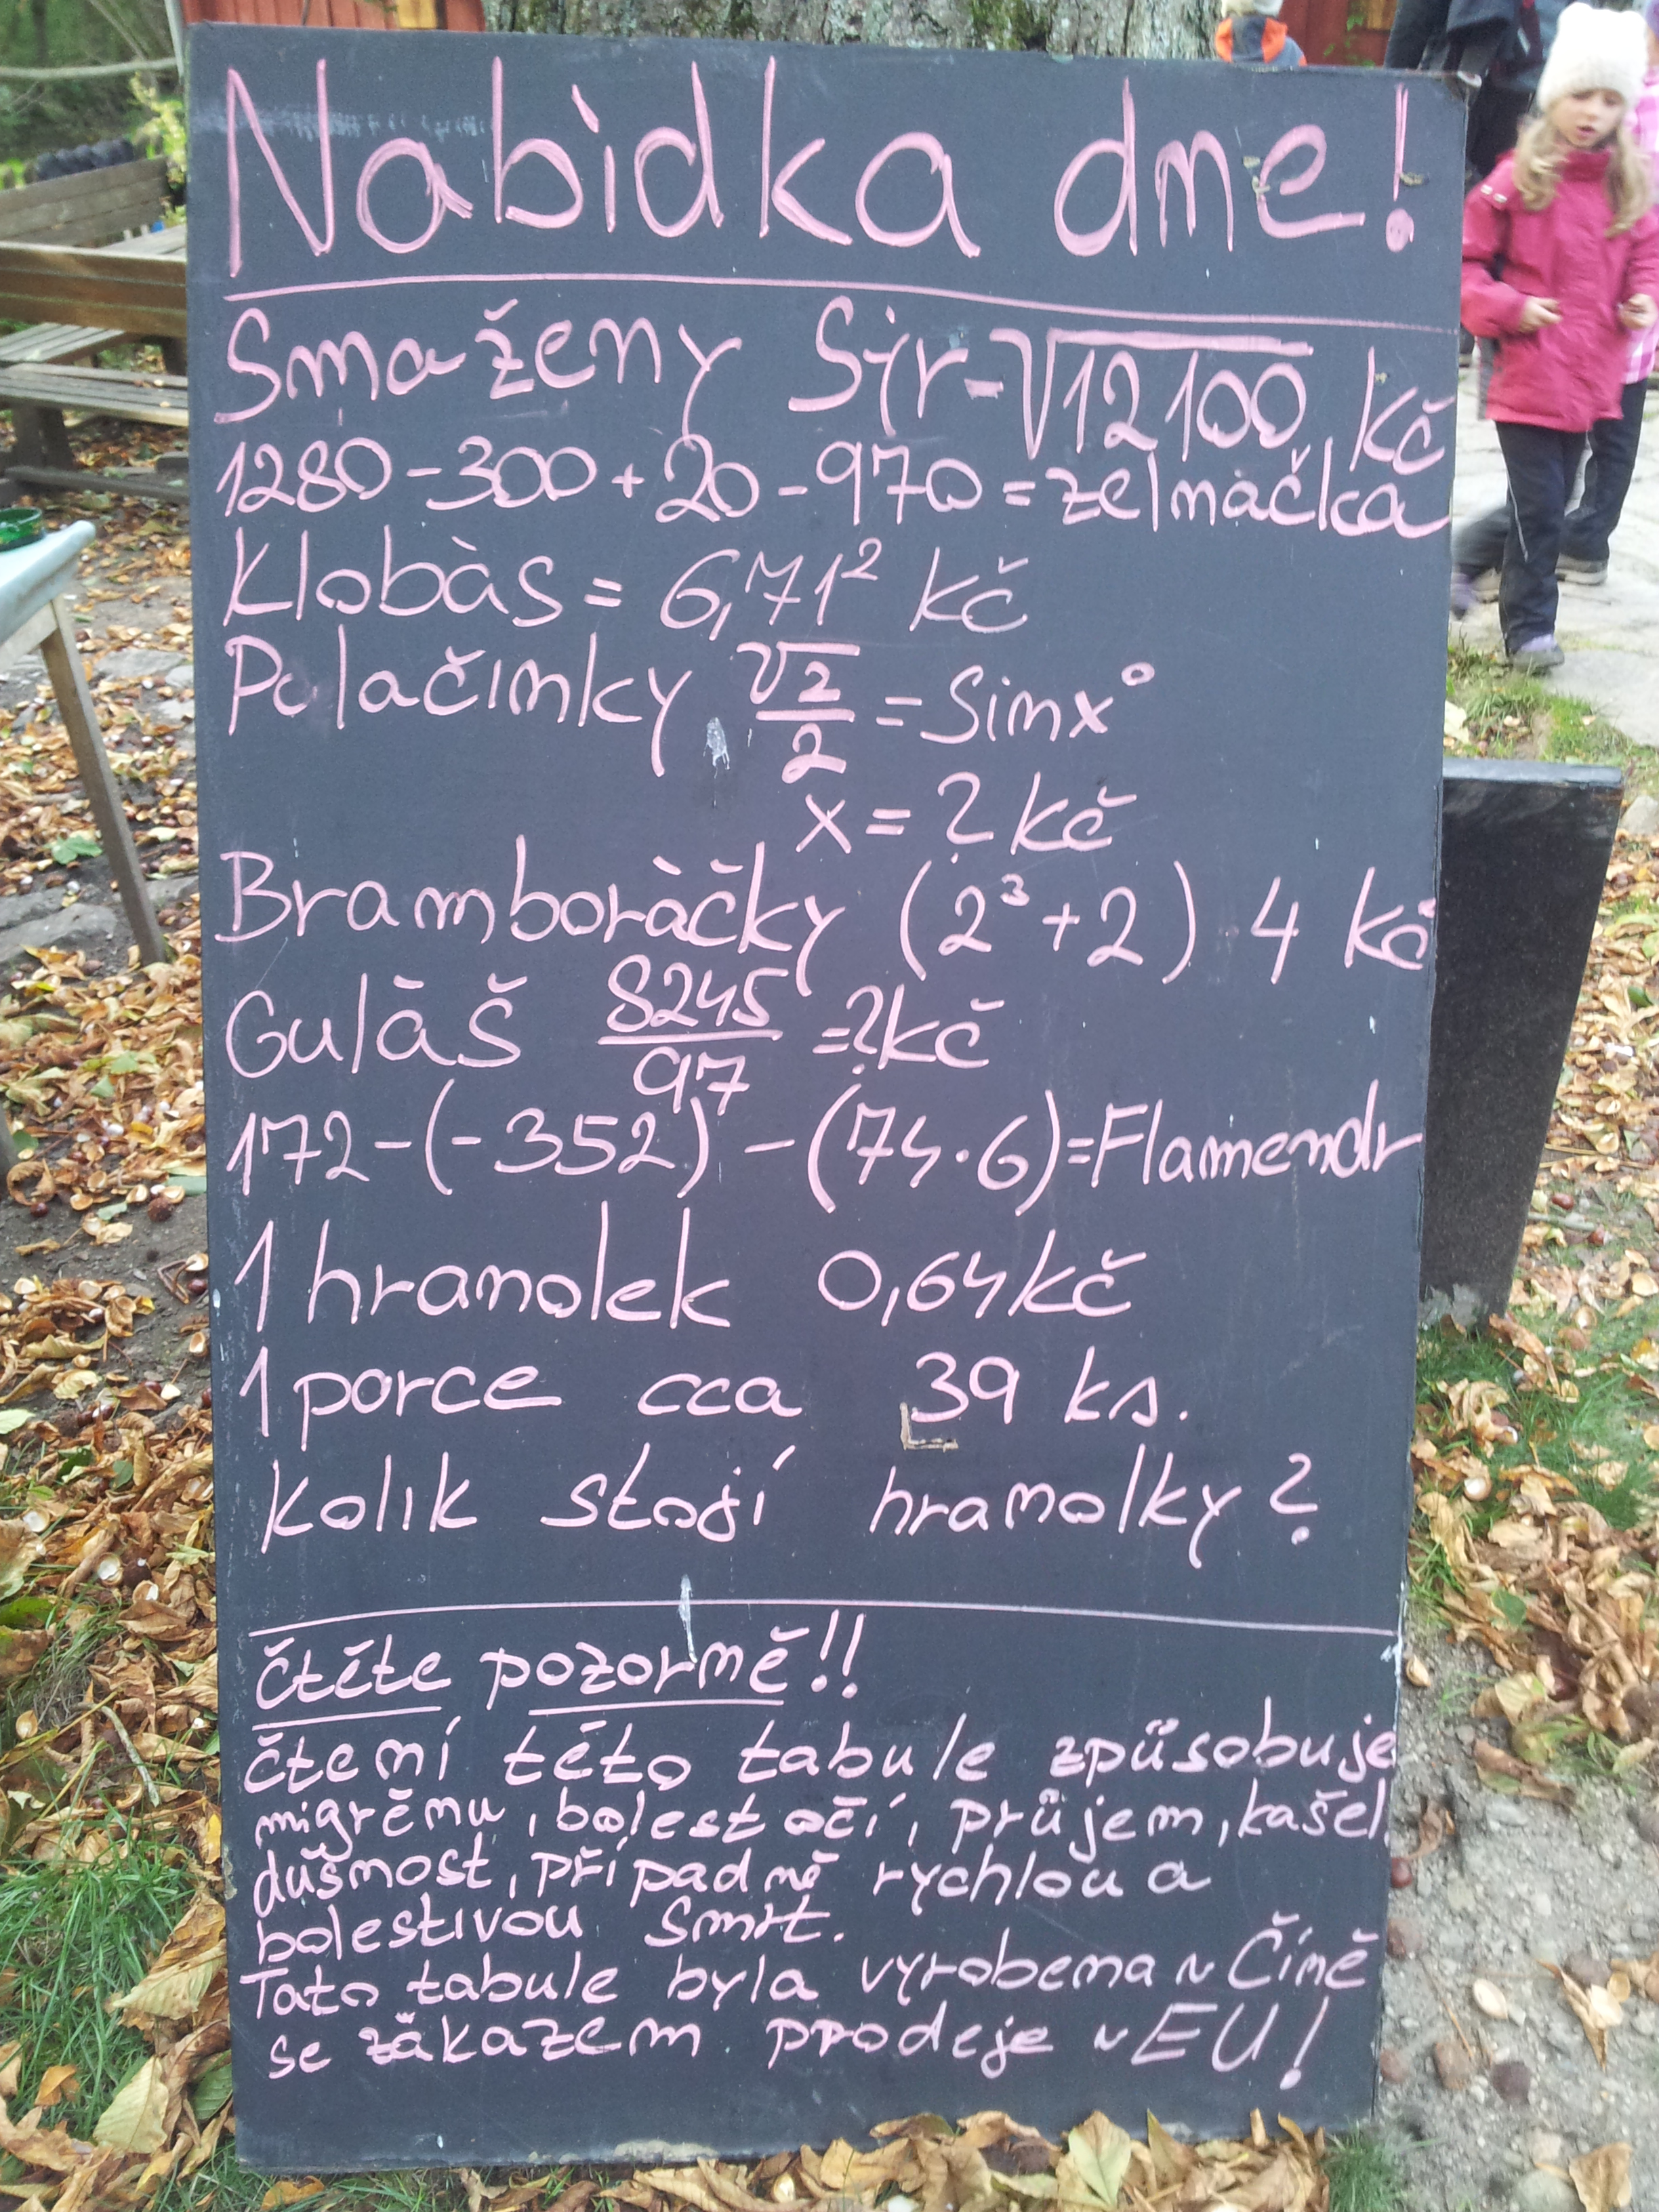 Nabìdka dne!
Smažený Sýr-√12100 Kč
1280-300+20-970=zelňačka
Klobàs = 6,71² Kč
Palačinky √2/2 = Sinx°
x = ? Kč
Bramboràčky (2³+2) 4 Kč
Guláš 8245/97 =?Kč
172-(-352)-(74·6)=Flamendr
1 hranolek 0,64Kč
1 porce cca 39 ks.
Kolik stojí hranolky?
čtěte pozorně!!
čtení této tabule způsobuje
migrénu, bolest očí, průjem, kašel,
dušnost, případně rychlou a
bolestivou smrt.
Tato tabule byla vyrobena v Číně
se zákazem prodeje v EU!